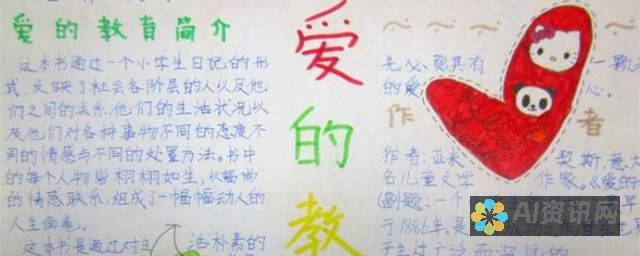 爱的教育简介
这本书通过一个小学生日记的形
式,反映了社会各阶层的人以及他
们之间的关系、他们的生活状况以
及他们对各种事物不同的态度不
同的情感与不同的处置方法。书中
的每个人物皆栩栩如生,以
的情感联系,组成了一幅幅动人的
人生画卷。
这本书是通过对 洁朴素的
爱的教
具有 一颗
的爱 心。
作者
作者:亚米 契斯,意
名儿童文学 作家。《爱的
(副题:一个
于1886年,是
AI资讯网